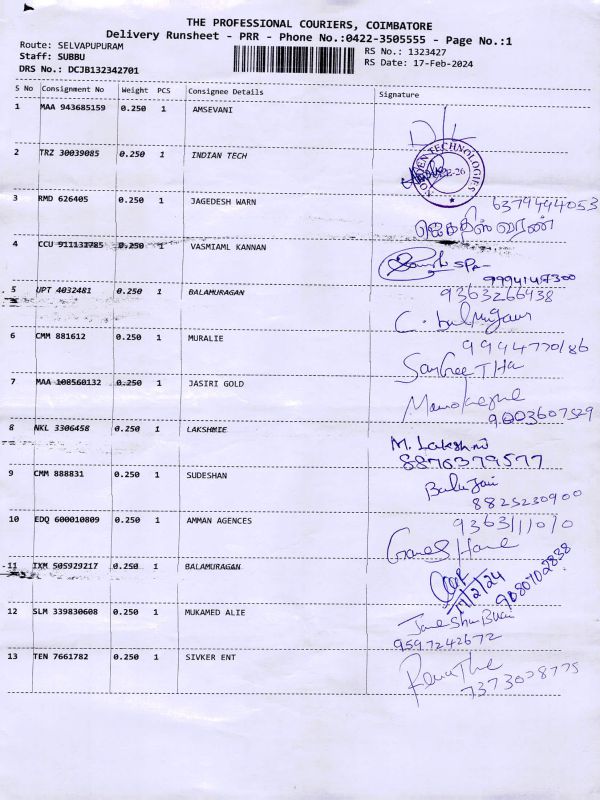 THE PROFESSIONAL COURIERS, COIMBATORE
Delivery Runsheet - PRR - Phone No.:0422-3505555 - Page No.:1
Route: SELVAPUPURAM
RS No.: 1323427
Staff: SUBBU
RS Date: 17-Feb-2024
DRS No.: DCJB132342701
S No Consignment No Weight PCS Consignee Details Signature
1 MAA 943685159 0.250 1 AMSEVANI
2 TRZ 30039085 0.250 1 INDIAN TECH
TECHNOLOGIES
3 RMD 626405 0.250 1 JAGEDESH WARN
6379444053
ஜெகதீஸ் வரண்
4 CCU 911131785 0.250 1 VASMIAML KANNAN
9994147300
5 UPT 4032481 0.250 1 BALAMURAGAN
9363266438
C. balmugan
6 CMM 881612 0.250 1 MURALIE
9944770186
SanGeeTHa
7 MAA 108560132 0.250 1 JASIRI GOLD
9003607529
8 NKL 3306458 0.250 1 LAKSHMIE
M. Lakshmi
8876379577
9 CMM 888831 0.250 1 SUDESHAN
8825230900
10 EDQ 600010809 0.250 1 AMMAN AGENCES
9363111010
11 IXM 505929217 0.250 1 BALAMURAGAN
17/2/24
9080702838
12 SLM 339830608 0.250 1 MUKAMED ALIE
9597242672
13 TEN 7661782 0.250 1 SIVKER ENT
7373028775